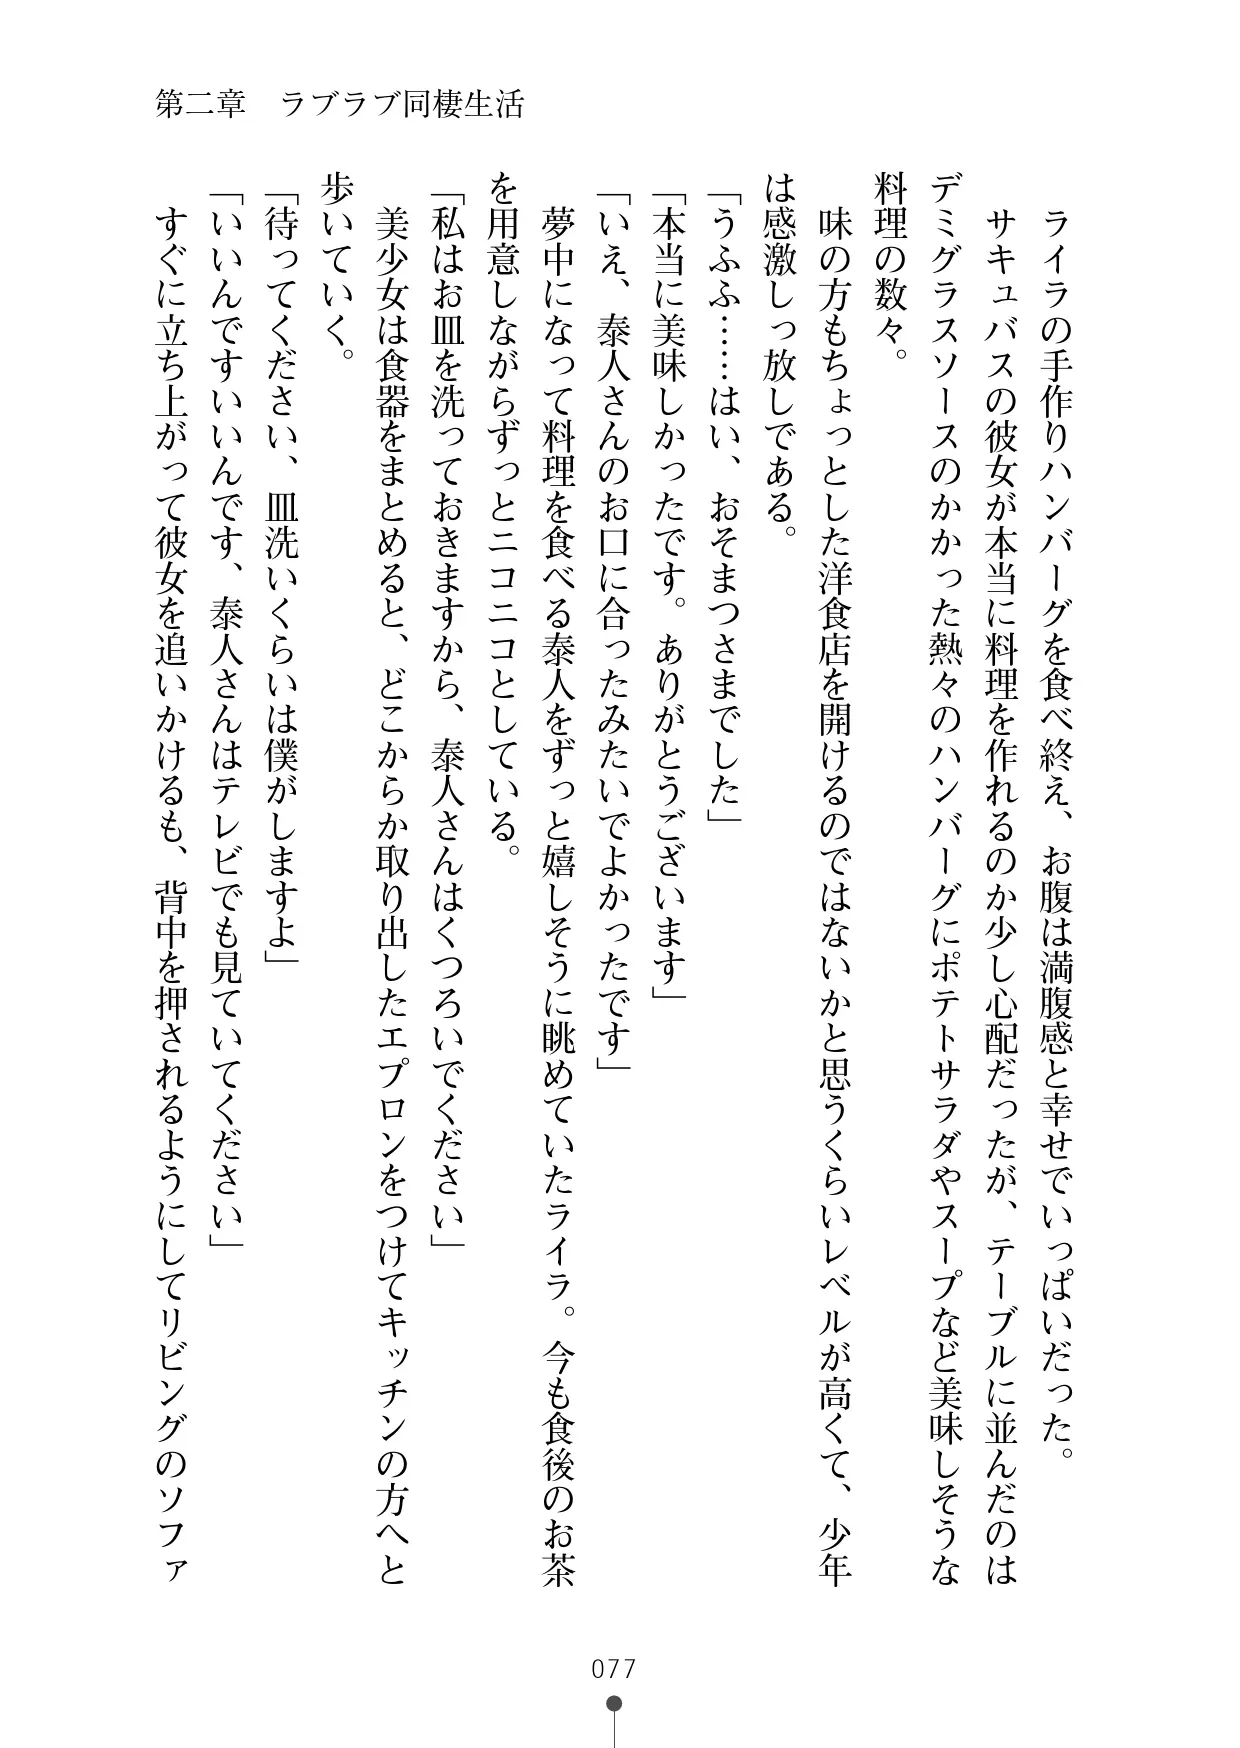 第二章　ラブラブ同棲生活
　ライラの手作りハンバーグを食べ終え、お腹は満腹感と幸せでいっぱいだった。
　サキュバスの彼女が本当に料理を作れるのか少し心配だったが、テーブルに並んだのは
デミグラスソースのかかった熱々のハンバーグにポテトサラダやスープなど美味しそうな
料理の数々。
　味の方もちょっとした洋食店を開けるのではないかと思うくらいレベルが高くて、少年
は感激しっ放しである。
「うふふ……はい、おそまつさまでした」
「本当に美味しかったです。ありがとうございます」
「いえ、泰人さんのお口に合ったみたいでよかったです」
　夢中になって料理を食べる泰人をずっと嬉しそうに眺めていたライラ。今も食後のお茶
を用意しながらずっとニコニコとしている。
「私はお皿を洗っておきますから、泰人さんはくつろいでください」
　美少女は食器をまとめると、どこからか取り出したエプロンをつけてキッチンの方へと
歩いていく。
「待ってください、皿洗いくらいは僕がしますよ」
「いいんですいいんです、泰人さんはテレビでも見ていてください」
　すぐに立ち上がって彼女を追いかけるも、背中を押されるようにしてリビングのソファ
077